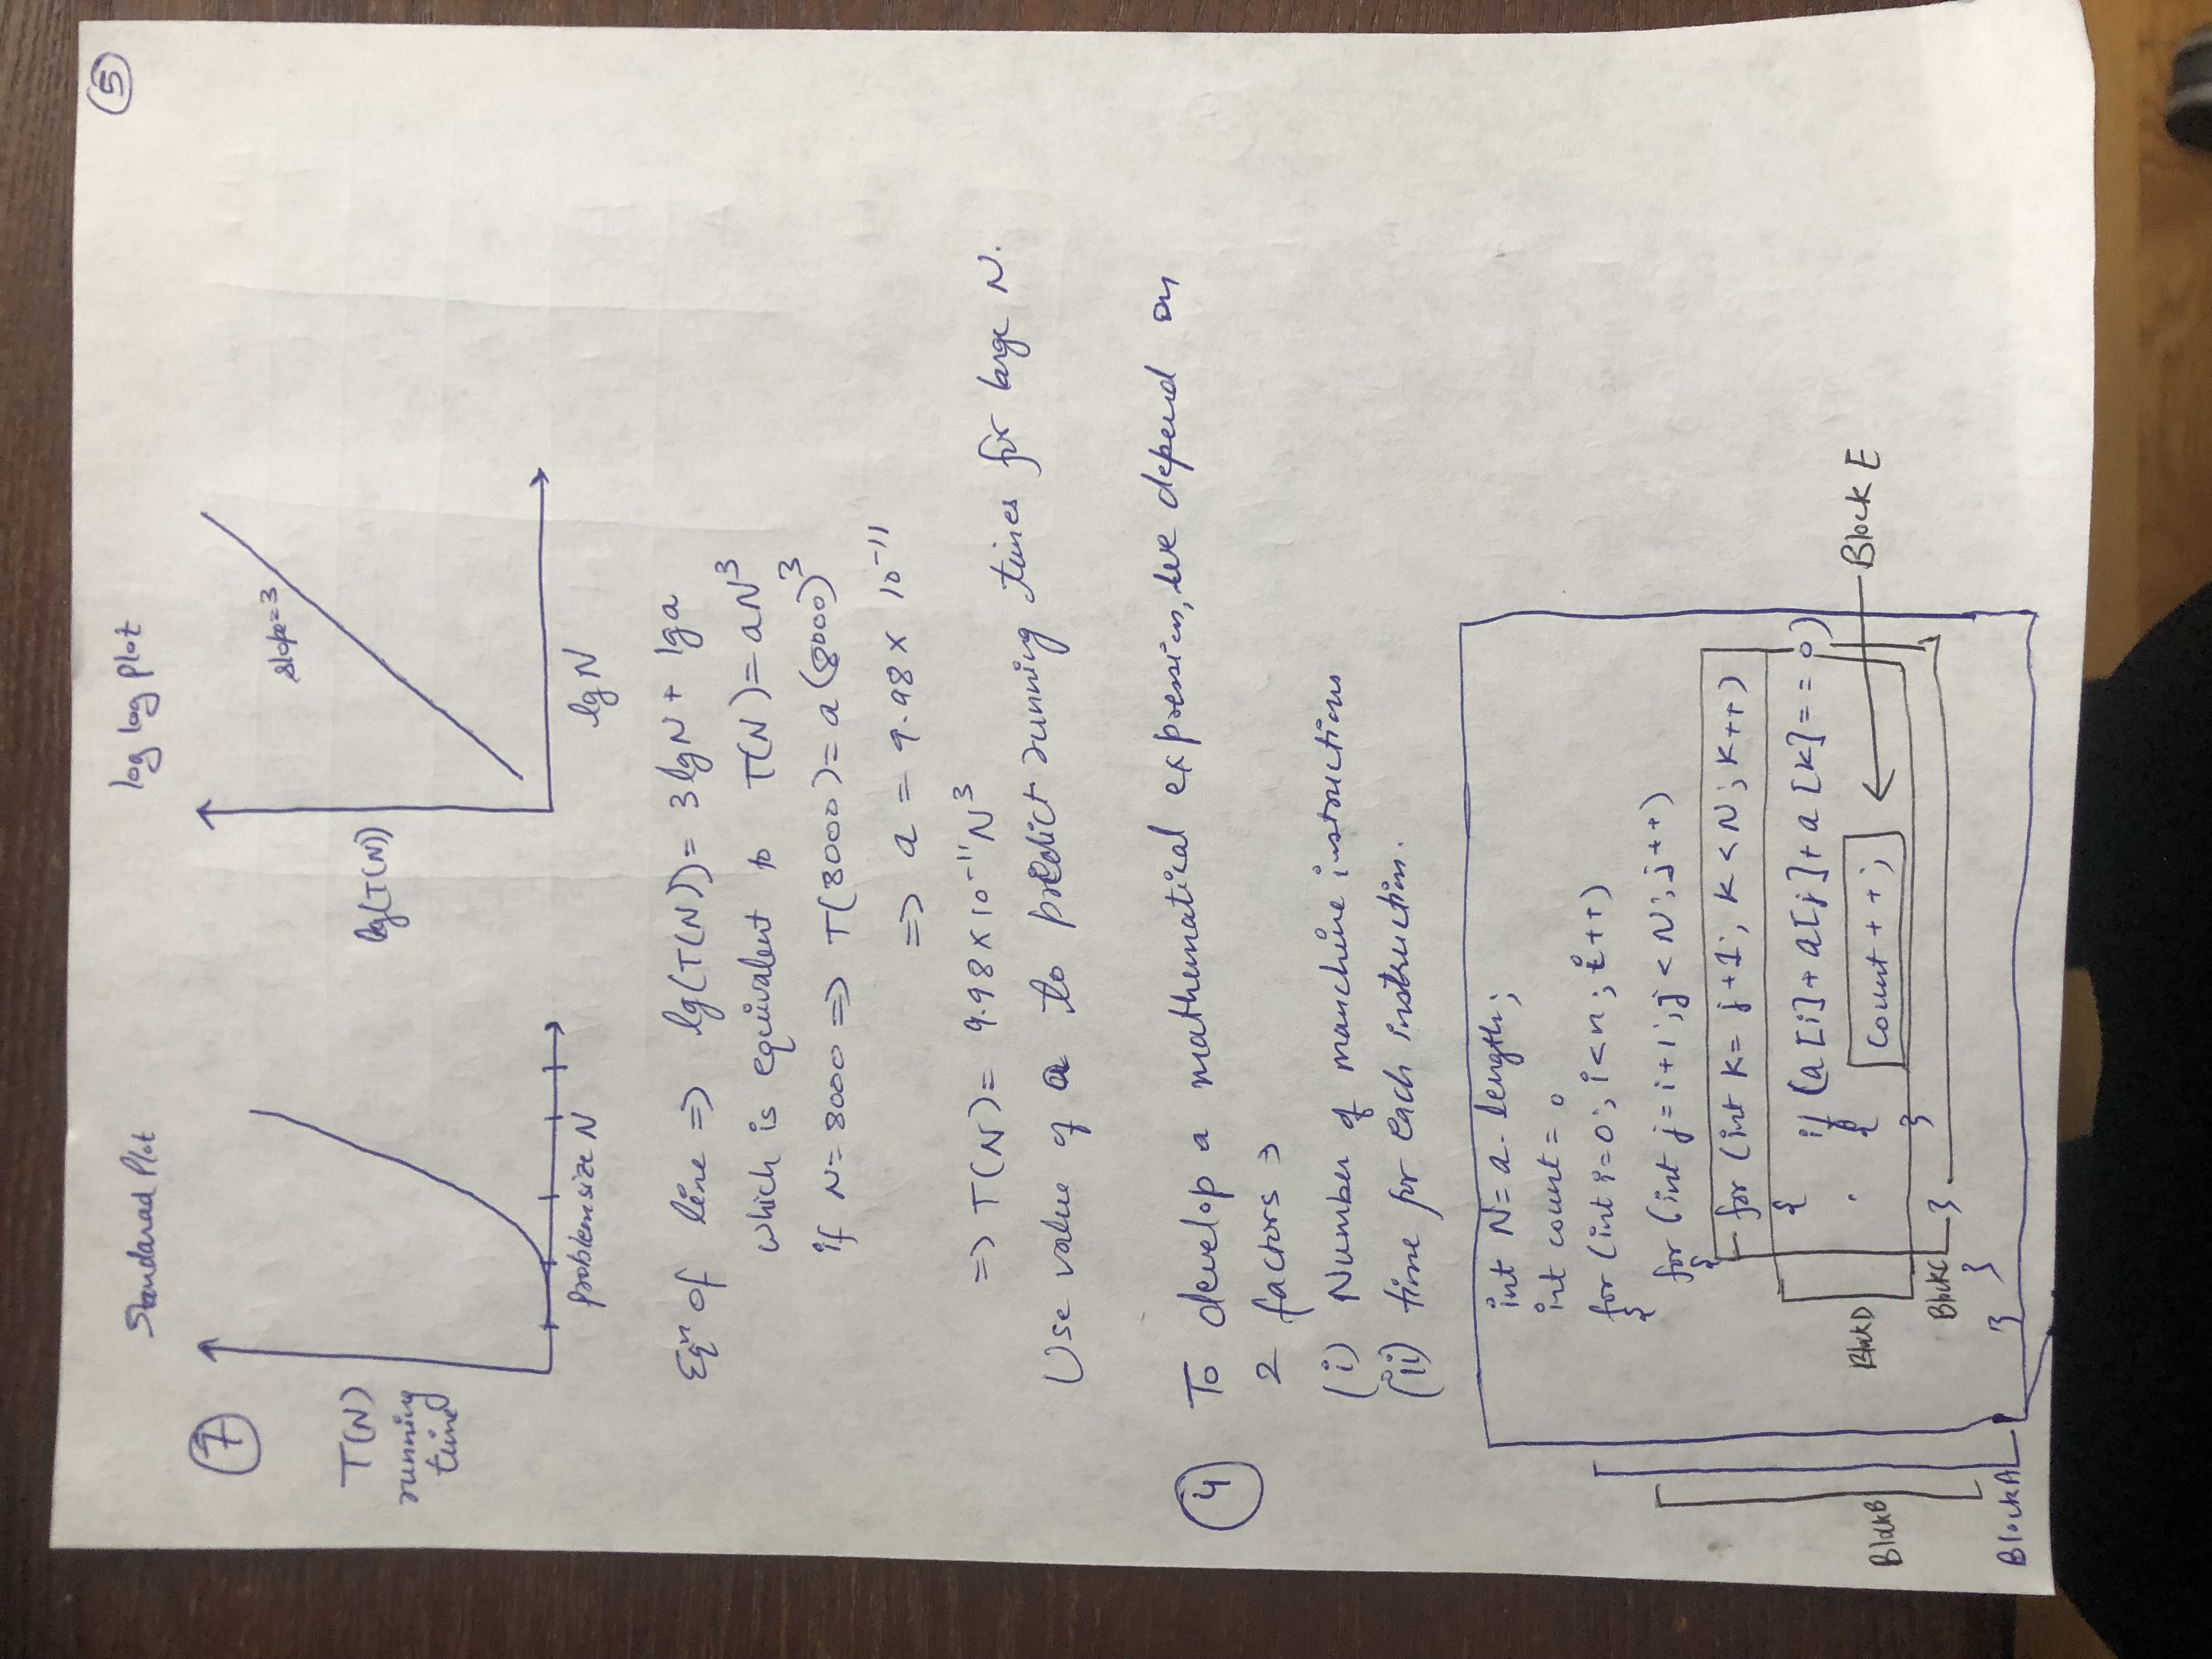 5
Standarad Plot
log log plot
7
T(N)
running
time
problem size N
lg(T(N))
slope=3
lg N
Eqⁿ of line => lg(T(N)) = 3 lgN + lg a
which is equivalent to T(N) = aN³
if N = 8000 => T(8000) = a(8000)³
=> a = 9.98 x 10⁻¹¹
=> T(N) = 9.98 x 10⁻¹¹N³
Use value of a to predict running times for large N.
4
To develop a mathematical expression, we depend on
2 factors →
(i) Number of manchine instructions
(ii) time for each instruction.
int N = a. length;
int count = 0
for (int i=0; i<n; i++)
{
for (int j=i+1; j<N; j++)
{
for (int k= j+1; k<N; k++)
{
if (a[i]+a[j]+a[k]==0)
{
count++;
Block E
Block D
Block B
}
Block C
}
}
Block A
}